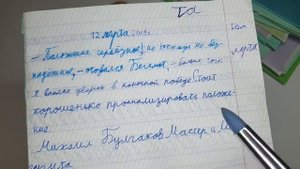 Та
12 марта 2019г.
том
— Положение серьёзное, но отнюдь не без-
марта
надёжное, — отозвался Бегемот, — больше того:
я вполне уверен в конечной победе. Стоит
хорошенько проанализировать положе-
ние.
Михаил Булгаков Мастер и Ма